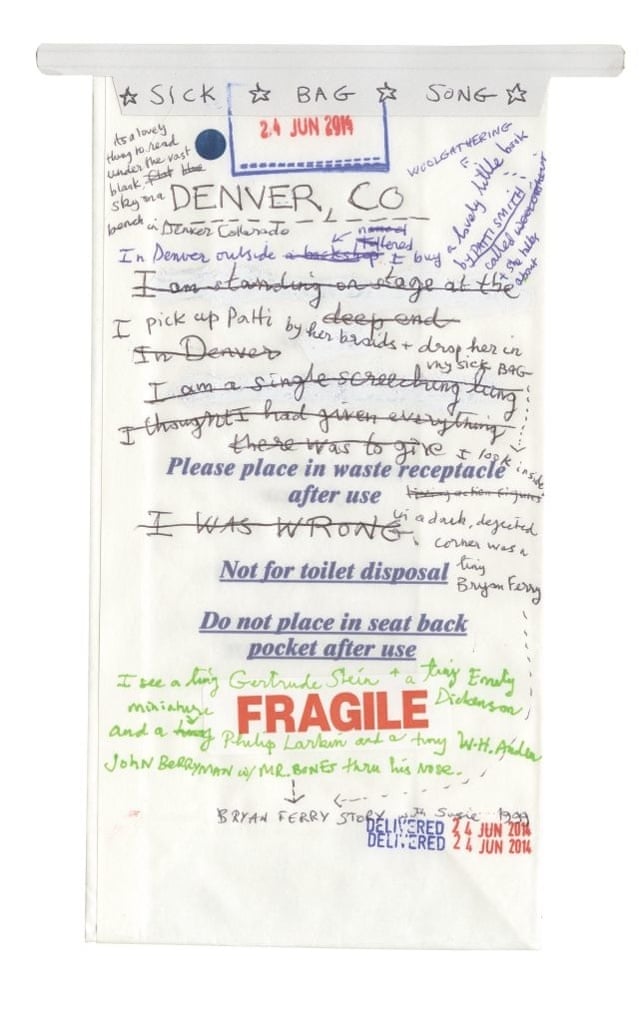 ☆ SICK ☆ BAG ☆ SONG ☆
24 JUN 2014
its a lovely
thing to read
under the vast
blank, flat blue
sky on a
bench in Denver Collorado
WOOLGATHERING
a lovely little book
by PATTI SMITH
called woolgathering
+ she talks
about
DENVER, CO
In Denver outside a bookshop I buy
I am standing on stage at the
deep end
I pick up Patti by her braids + drop her in
my sick BAG
In Denver
I am a single screeching lung
I thought I had given everything
there was to give
I look inside
Please place in waste receptacle
after use
I WAS WRONG.
in a dark, dejected
corner was a
tiny
Bryan Ferry
Not for toilet disposal
Do not place in seat back
pocket after use
I see a tiny Gertrude Stein + a tiny Emily
Dickenson,
miniature
FRAGILE
and a tiny Philip Larkin and a tiny W.H. Auden
JOHN BERRYMAN w/ MR. BONES thru his nose.
BRYAN FERRY STORY with Susie 1999
DELIVERED 24 JUN 2014
DELIVERED 24 JUN 2014